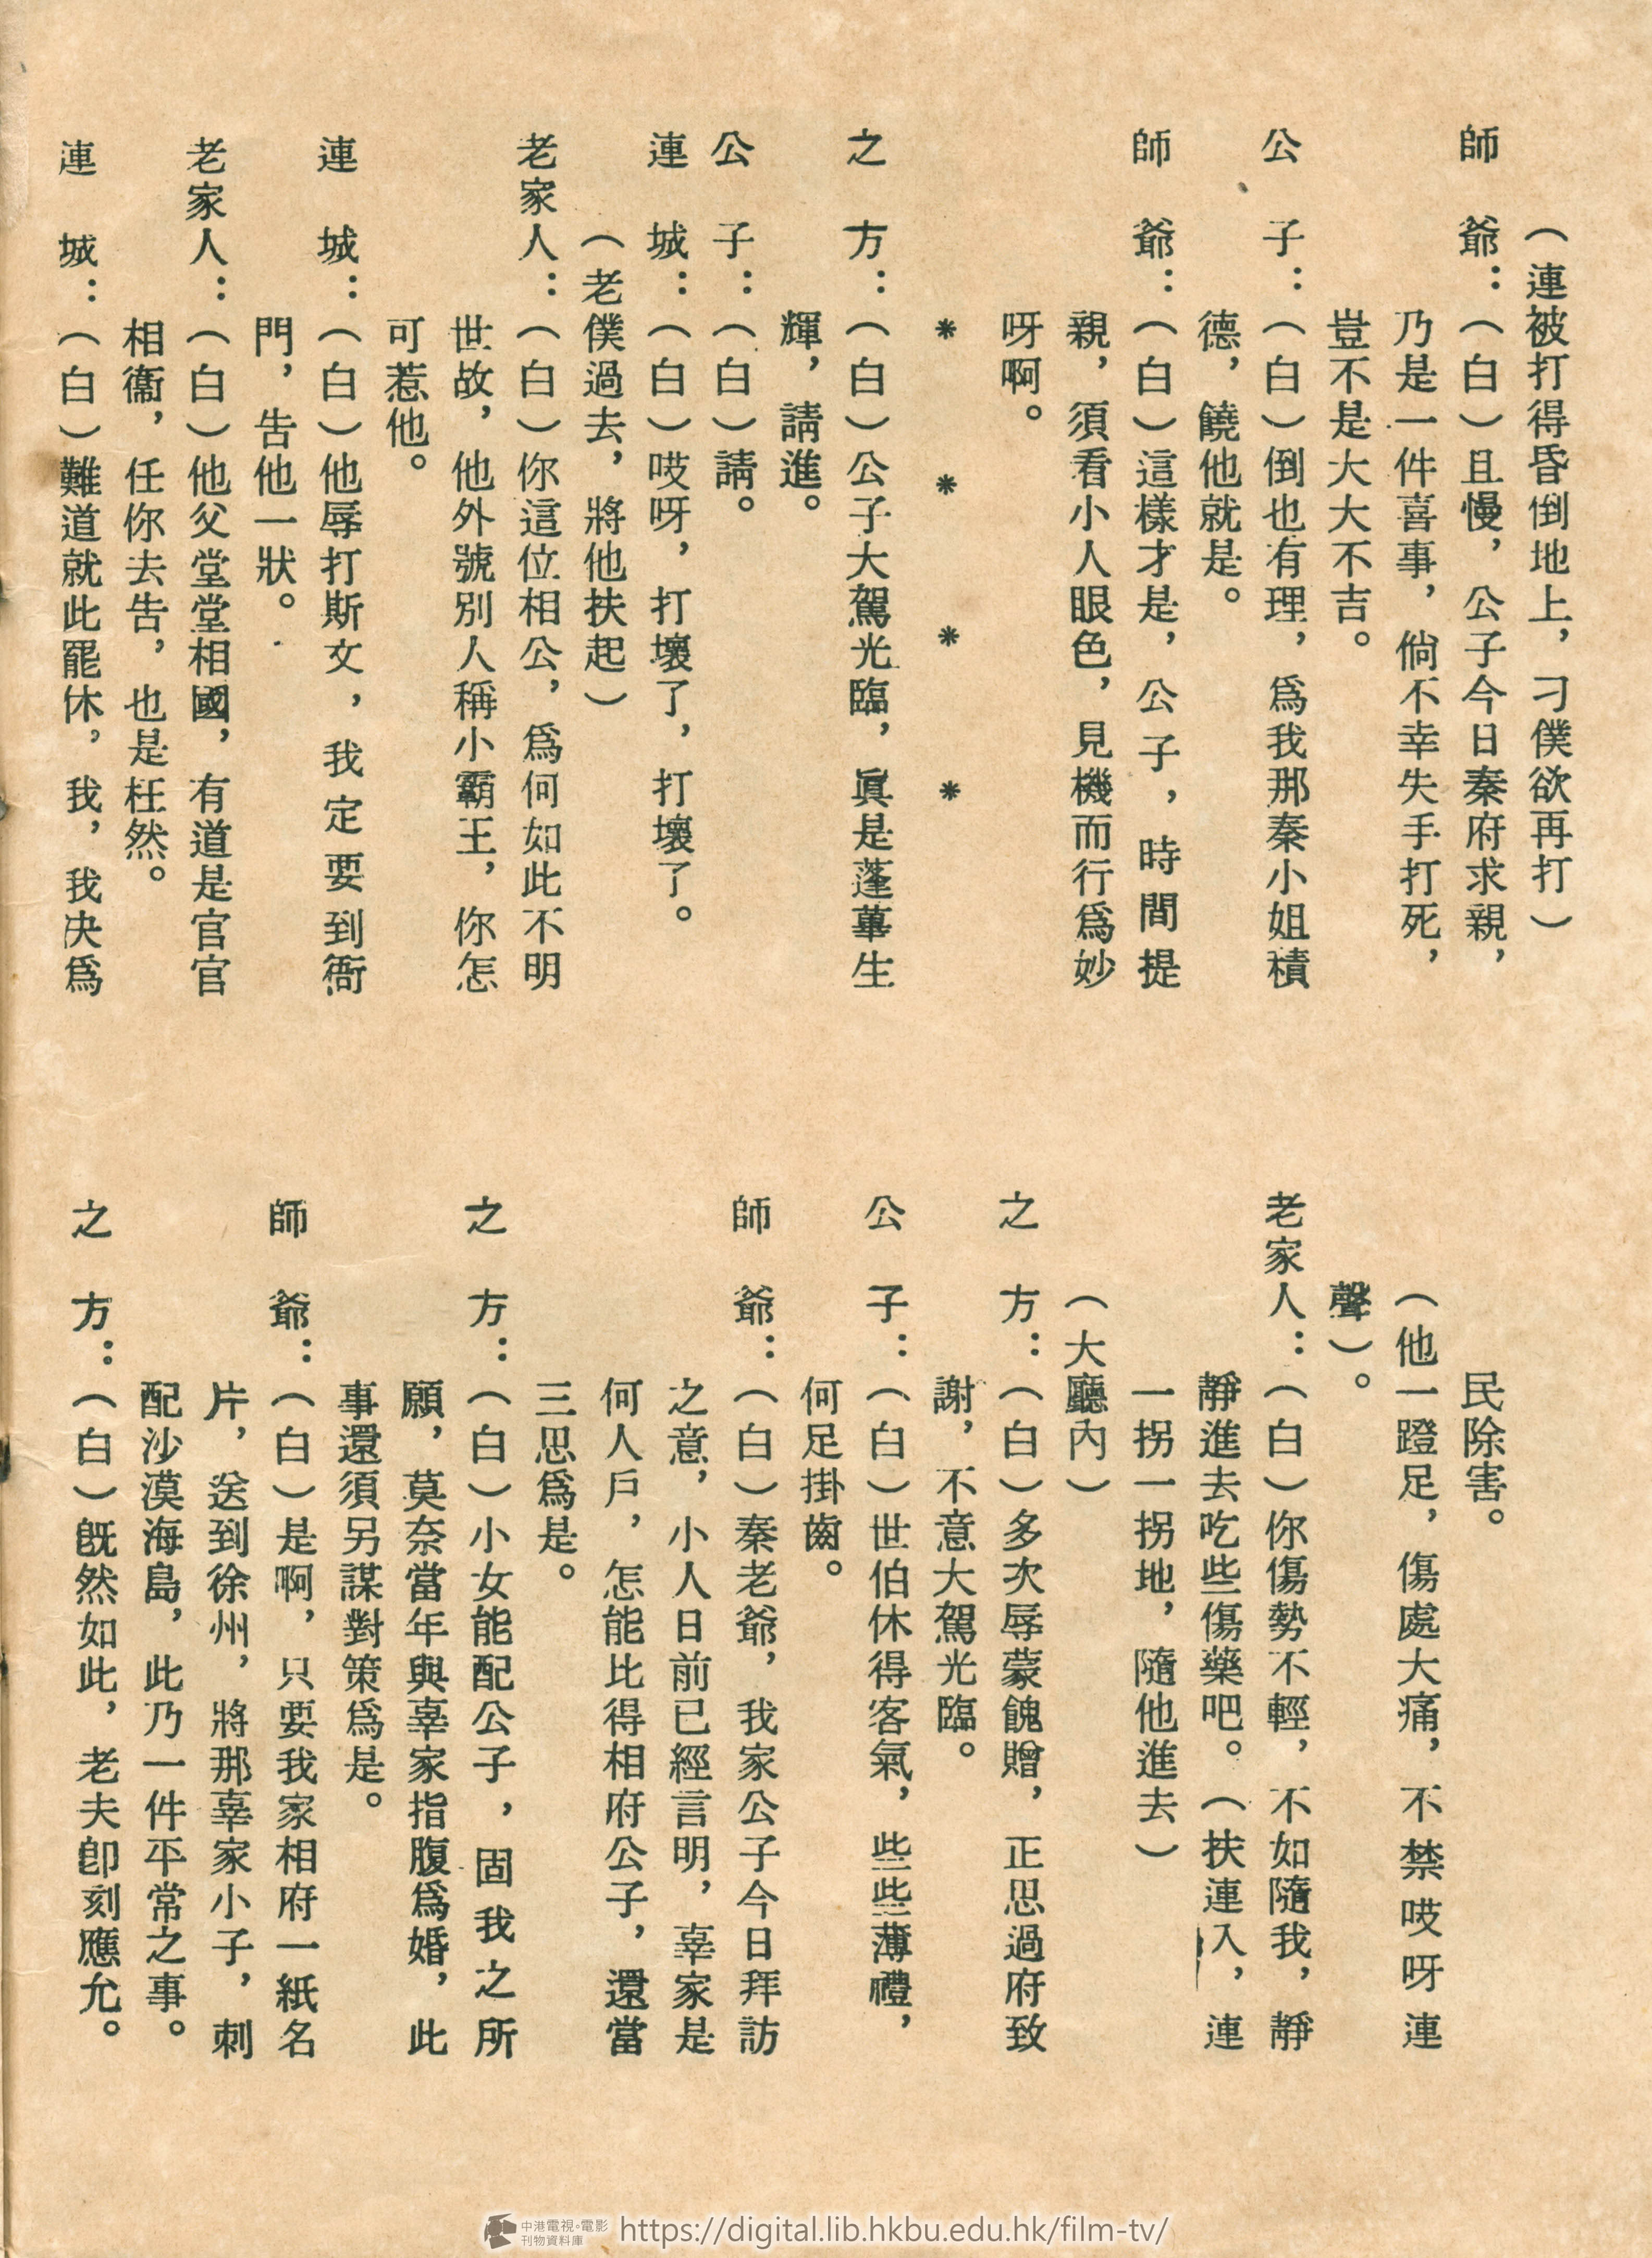 （連被打得昏倒地上，刁僕欲再打）
師　爺：（白）且慢，公子今日秦府求親，
乃是一件喜事，倘不幸失手打死，
豈不是大大不吉。
公　子：（白）倒也有理，爲我那秦小姐積
德，饒他就是。
師　爺：（白）這樣才是，公子，時間提
親，須看小人眼色，見機而行爲妙
呀啊。
＊　＊　＊　＊
之　方：（白）公子大駕光臨，眞是蓬蓽生
輝，請進。
公　子：（白）請。
連　城：（白）哎呀，打壞了，打壞了。
（老僕過去，將他扶起）
老家人：（白）你這位相公，爲何如此不明
世故，他外號別人稱小霸王，你怎
可惹他。
連　城：（白）他辱打斯文，我定要到衙
門，告他一狀。
老家人：（白）他父堂堂相國，有道是官官
相衞，任你去告，也是枉然。
連　城：（白）難道就此罷休，我，我决爲
民除害。
（他一蹬足，傷處大痛，不禁哎呀連
聲）。
老家人：（白）你傷勢不輕，不如隨我，靜
靜進去吃些傷藥吧。（扶連入，連
一拐一拐地，隨他進去）
（大廳內）
之　方：（白）多次辱蒙餽贈，正思過府致
謝，不意大駕光臨。
公　子：（白）世伯休得客氣，些些薄禮，
何足掛齒。
師　爺：（白）秦老爺，我家公子今日拜訪
之意，小人日前已經言明，辜家是
何人戶，怎能比得相府公子，還當
三思爲是。
之　方：（白）小女能配公子，固我之所
願，莫奈當年與辜家指腹爲婚，此
事還須另謀對策爲是。
師　爺：（白）是啊，只要我家相府一紙名
片，送到徐州，將那辜家小子，刺
配沙漠海島，此乃一件平常之事。
之　方：（白）旣然如此，老夫卽刻應允。
中港電視・電影
刊物資料庫
https://digital.lib.hkbu.edu.hk/film-tv/